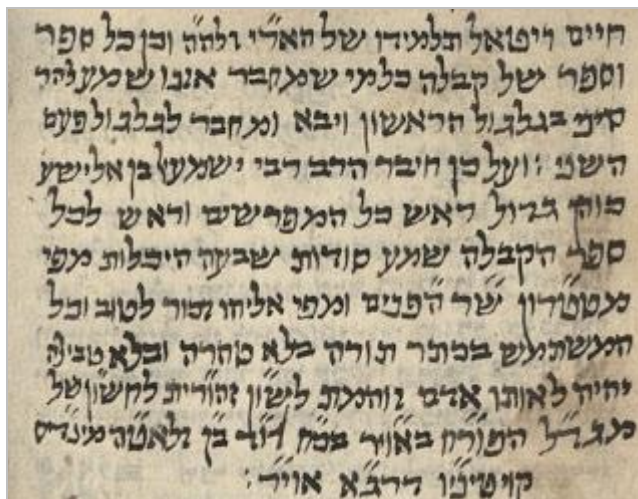 חיים ויטאל תלמידו של האר״י זלה״ה וכן כל ספר
וספר של קבלה כל מי שמחבר אנבו שמע להר
סיני בגלגול הראשון ויבא ומחבר לגלגול פעם
השני : ועל כן חיבר הרב רבי ישמעאל בן אלישע
כוהן גדול ראש כל המפרשים וראש לכל
ספר הקבלה שמע סודות שבעה היכלות מפי
מטטרון שר הפנים ומפי אליהו זכור לטוב וכל
המשתמש בכתר תורה בלא טהרה ובלא טבילה
יהיה לאותן אדם
מגדל הפורח באויר בכח דוד בן
אויר :